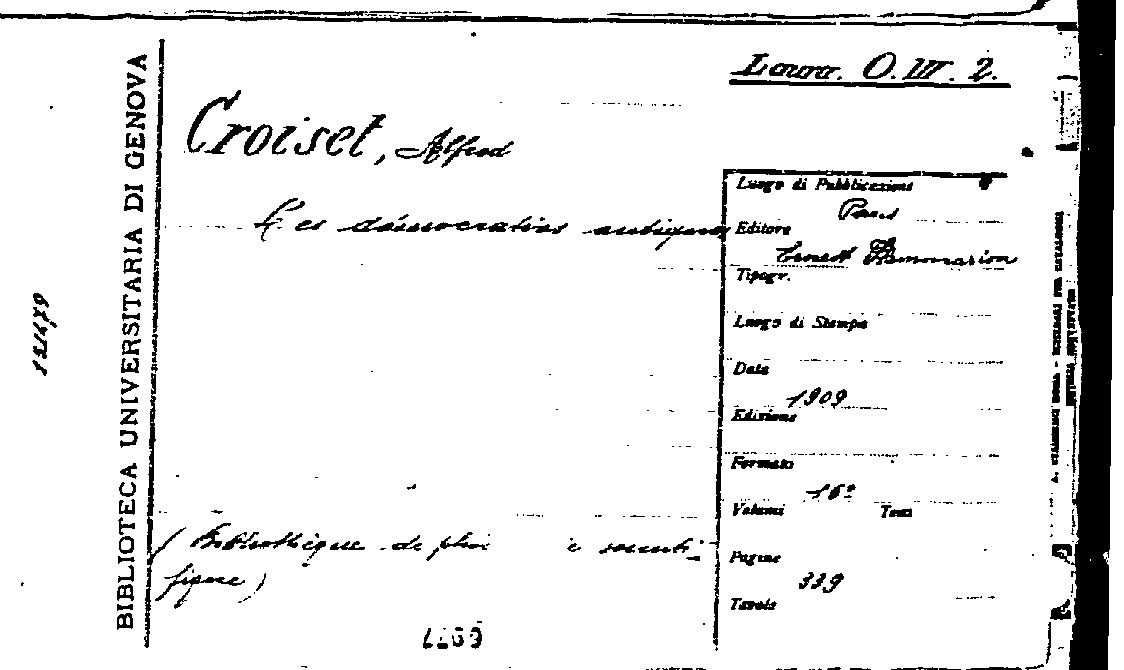 O. III. 2.
Croiset, Alfred
Les démocraties antiques
(Bibliothèque de phi e scienti-
fique)
Luogo di Pubblicazione
Paris
Editore
Ernest Flammarion
Tipogr.
Luogo di Stampa
Data
1909
Edizione
Formato
16º
Volumi Tomi
Pagine
339
Tavole
BIBLIOTECA UNIVERSITARIA DI GENOVA